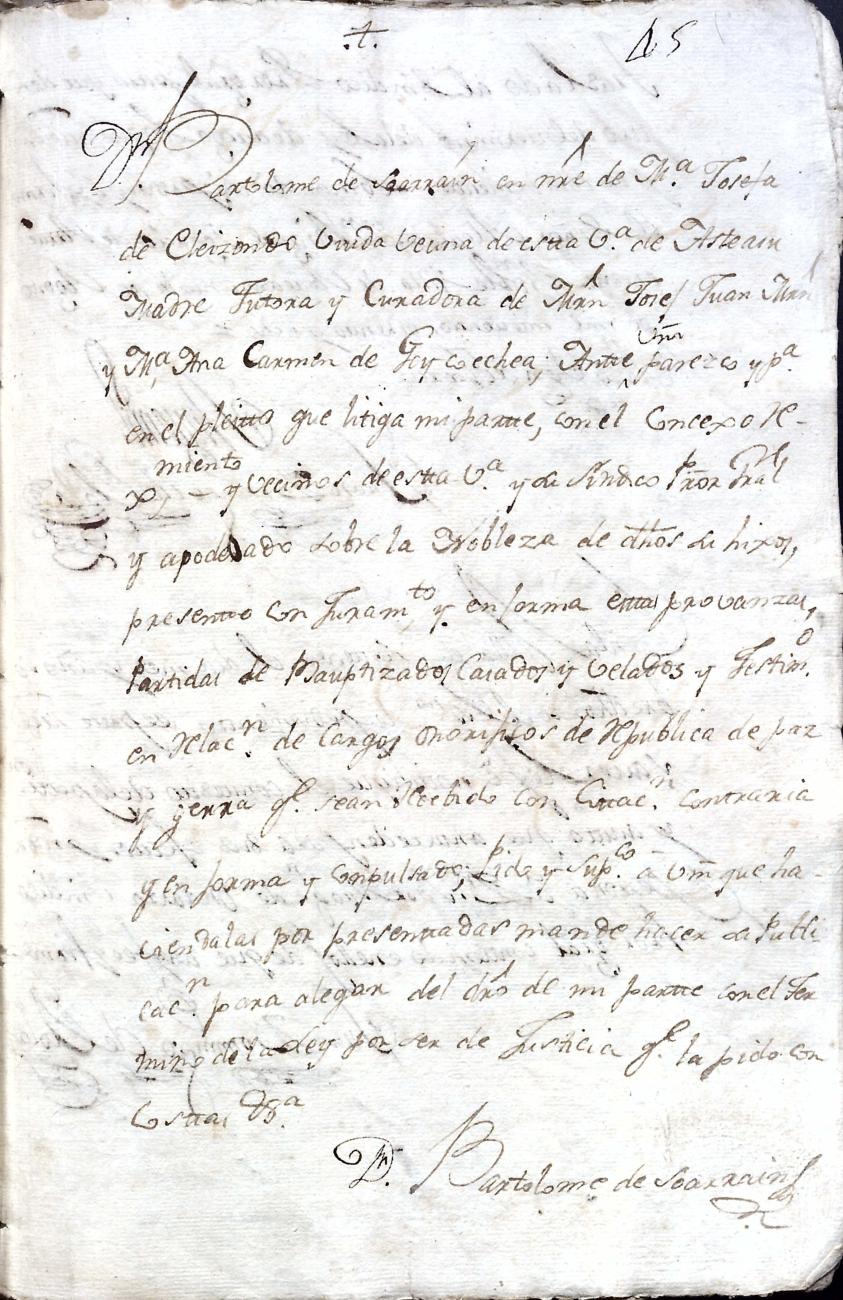 .+.
45
Dn Bartolome de Ibarrain en nre de Ma. Josefa
de Eleizondo Viuda vecina de estta Va. de Asteasu
Madre Tutora y Curadora de Mrn Josef Juan Mrn
y Ma. Ana Carmen de Goycoechea; Antte Vm parezco y pa.
en el pleitto que litiga mi partte, con el Concexo Re-
ximiento y vecinos de estta Va. y su Sindico Pror Gral
y apoderado sobre la Nobleza de dhos su hixos,
presentto con Juramto. y en forma esttas provanzas,
Partidas de Bauptizados Casados y Velados y Testimo.
en Relacn. de Cargos onorificos de Republica de paz
y gerra qe. sean Recibido con Cittacn. contraria
y en forma y conpulsado; Pido y supco. a Vm que ha-
ciendolas por presenttadas mande hacer su Publi-
cacn. para alegar del dro de mi partte con el Ter
mino de la Ley por ser de Justicia qe. la pido con
Costtas &a.
Dn. Bartolome de Ibarrain